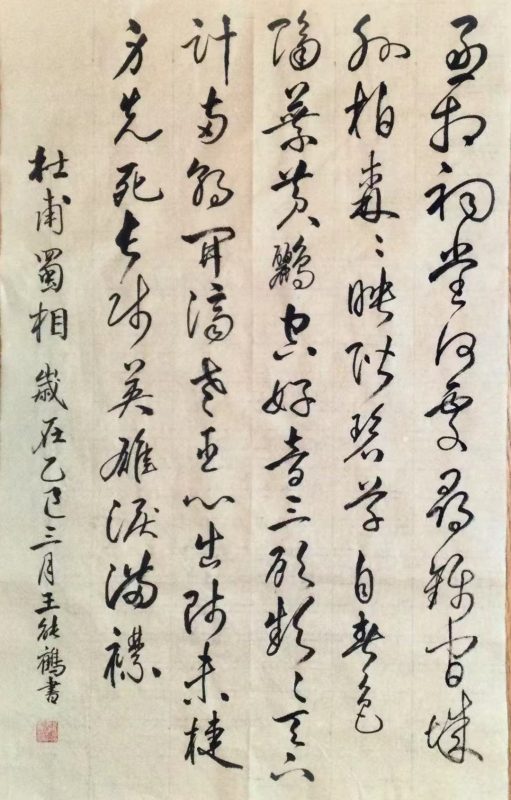 丞相祠堂何處尋錦官城
外柏森〻映階碧草自春色
隔葉黃鸝空好音三顧頻〻天下
計兩朝開濟老臣心出師未捷
身先死長使英雄淚滿襟
杜甫蜀相 歲在乙巳三月王能鶴書